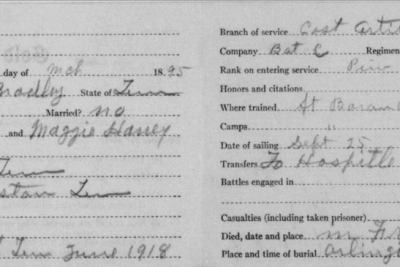 day of mch 1895
Bradley State of Tenn
Married? no
and Maggie
Tenn
Tenn
Tenn June 1918
Branch of service Cost Arti
Company Bat C Regimen
Rank on entering service Priv
Honors and citations
Where trained At
Camps "
Date of sailing Sept 25
Transfers To Hospitle
Battles engaged in
Casualties (including taken prisoner)
Died, date and place
Place and time of burial Arling